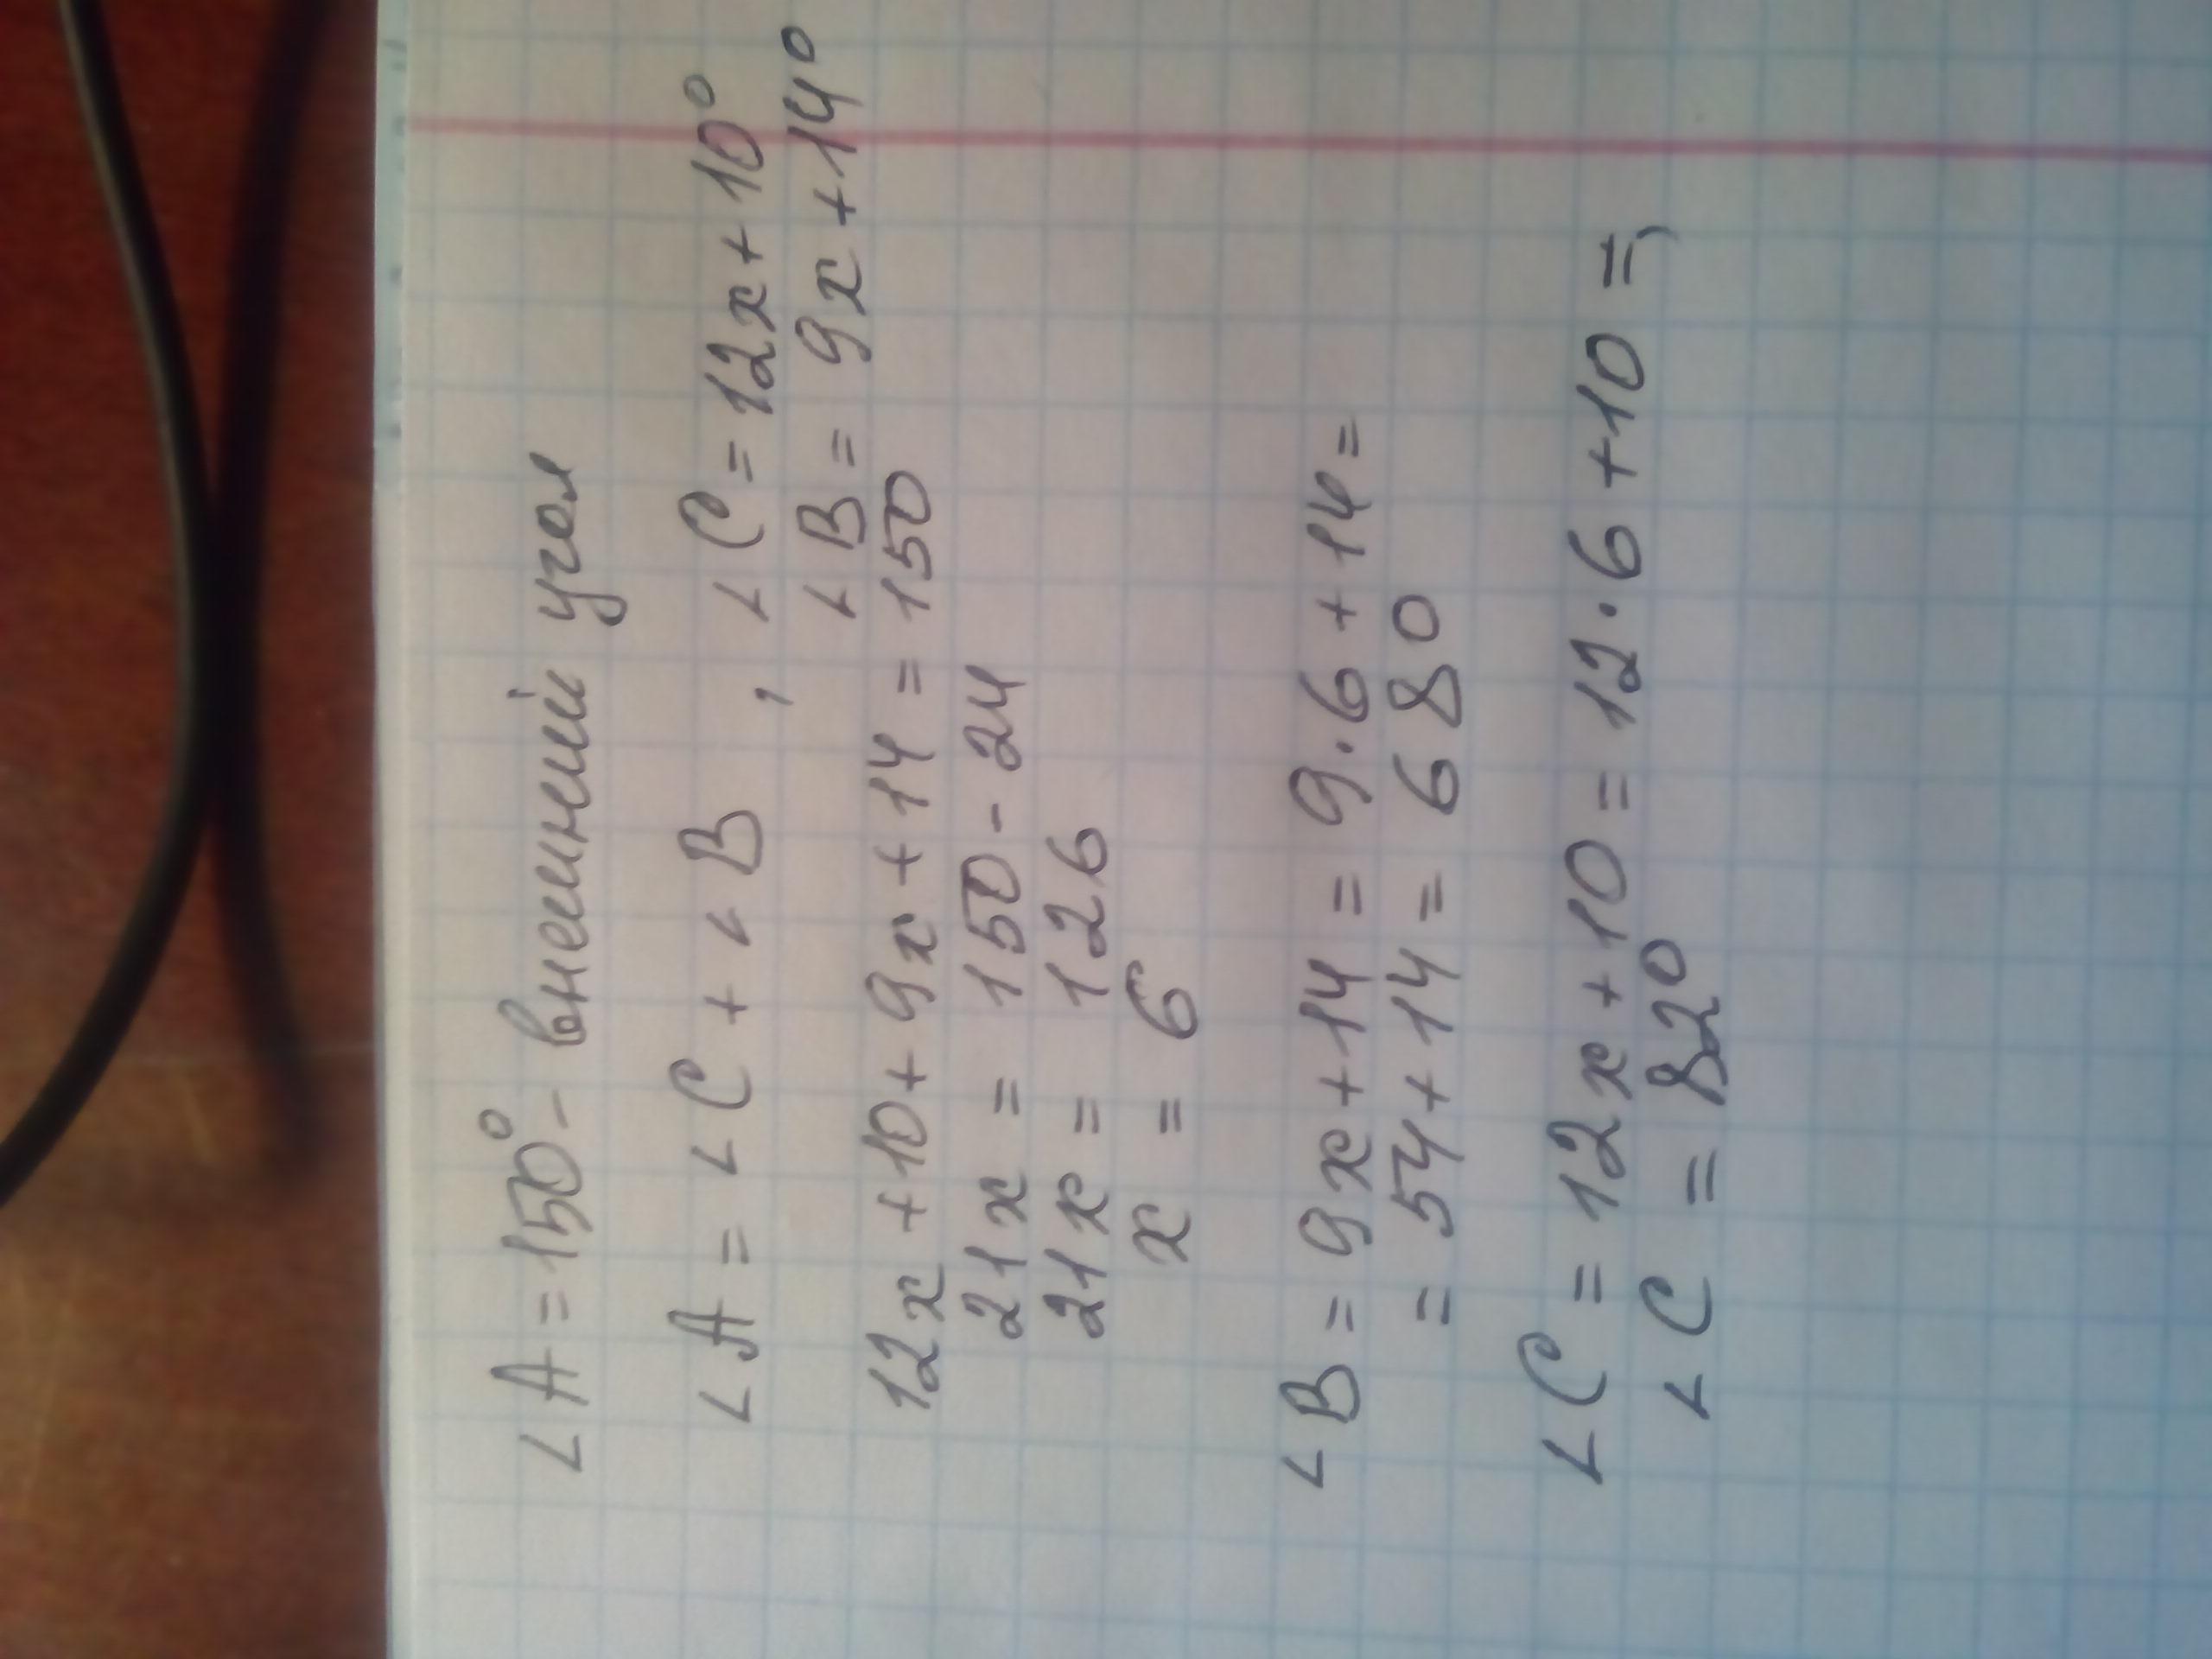 ∠A = 150° - внешний угол
∠A = ∠C + ∠B , ∠C = 12x + 10°
∠B = 9x + 14°
12x + 10 + 9x + 14 = 150
21x = 150 - 24
21x = 126
x = 6
∠B = 9x + 14 = 9 · 6 + 14 =
= 54 + 14 = 68°
∠C = 12x + 10 = 12 · 6 + 10 =,
∠C = 82°